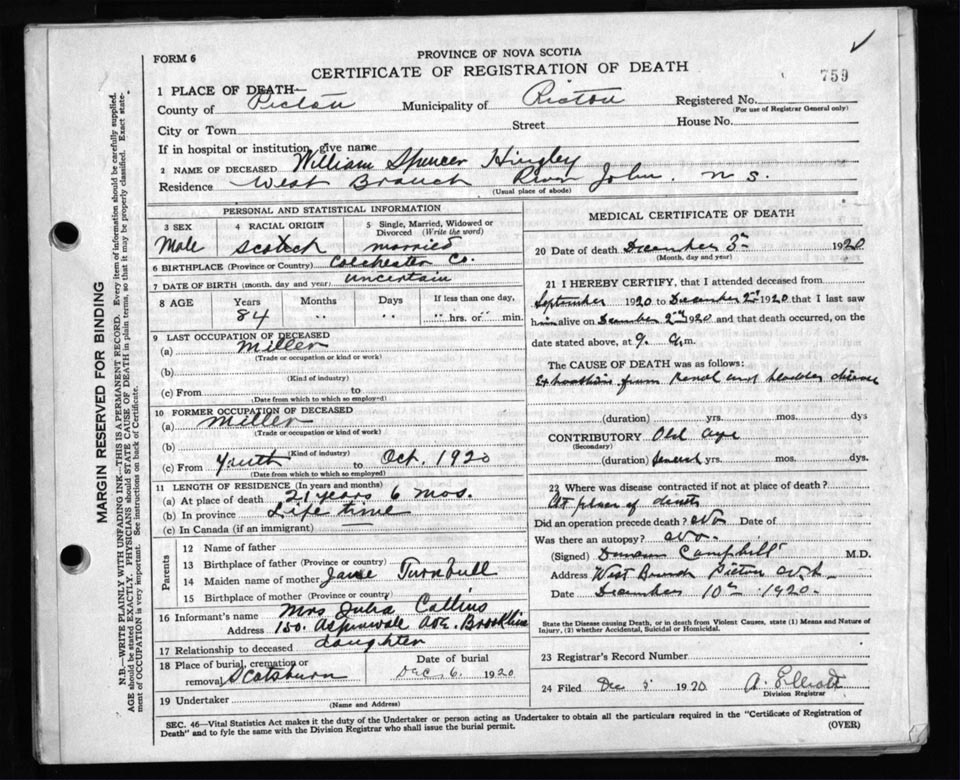 FORM 6
PROVINCE OF NOVA SCOTIA
CERTIFICATE OF REGISTRATION OF DEATH
759
1 PLACE OF DEATH—
County of Pictou Municipality of Pictou Registered No.
(For use of Registrar General only)
City or Town Street House No.
If in hospital or institution, give name
2 NAME OF DECEASED William Spencer Hingley
Residence West Branch River John. N S.
(Usual place of abode)
PERSONAL AND STATISTICAL INFORMATION
3 SEX 4 RACIAL ORIGIN 5 Single, Married, Widowed or Divorced (Write the word)
Male Scotch married
6 BIRTHPLACE (Province or Country) Colchester Co.
7 DATE OF BIRTH (month, day and year) uncertain
8 AGE Years Months Days If less than one day,
84 " " " " " hrs. or " min.
9 LAST OCCUPATION OF DECEASED
(a) Miller
(Trade or occupation or kind or work)
(b)
(Kind of industry)
(c) From to
(Date from which to which so employed)
10 FORMER OCCUPATION OF DECEASED
(a) Miller
(Trade or occupation or kind of work)
(b)
(Kind of industry)
(c) From Youth to Oct. 1920
(Date from which to which so employed)
11 LENGTH OF RESIDENCE (In years and months)
(a) At place of death 21 years 6 mos.
(b) In province Life time
(c) In Canada (if an immigrant)
Parents
12 Name of father
13 Birthplace of father (Province or country)
14 Maiden name of mother Jane Turnbull
15 Birthplace of mother (Province or Country)
16 Informant's name Mrs Julia Collins
Address 150. Aspinwall Ave. Brookline
17 Relationship to deceased daughter
18 Place of burial, cremation or removal Scotsburn
Date of burial
Dec 6. 1920
19 Undertaker
(Name and Address)
MEDICAL CERTIFICATE OF DEATH
20 Date of death December 3rd 1920
(Month, day and year)
21 I HEREBY CERTIFY, that I attended deceased from
September 1920 to December 2nd 1920 that I last saw
him alive on December 2nd 1920 and that death occurred, on the
date stated above, at 9. a.m.
The CAUSE OF DEATH was as follows:
Exhaustion from Renal and bladder disease
(duration) yrs. mos. dys
CONTRIBUTORY Old age
(Secondary)
(duration) Several yrs. mos. dys
22 Where was disease contracted if not at place of death?
At place of death
Did an operation precede death? No Date of
Was there an autopsy? No.
(Signed) Duncan Campbell M.D.
Address West Branch Pictou N.S.
Date December 10th 1920.
State the Disease causing Death, or in death from Violent Causes, state (1) Means and Nature of
Injury, (2) whether Accidental, Suicidal or Homicidal.
23 Registrar's Record Number
24 Filed Dec 5 1920 A. Elliott
Division Registrar
SEC. 46—Vital Statistics Act makes it the duty of the Undertaker or person acting as Undertaker to obtain all the particulars required in the "Certificate of Registration of
Death" and to fyle the same with the Division Registrar who shall issue the burial permit. (OVER)
MARGIN RESERVED FOR BINDING
N.B.—WRITE PLAINLY WITH UNFADING INK—THIS IS A PERMANENT RECORD. Every item of information should be carefully supplied.
AGE should be stated EXACTLY. PHYSICIANS should STATE CAUSE OF DEATH in plain terms, so that it may be properly classified. Exact state-
ment of OCCUPATION is very important. See instructions on back of Certificate.